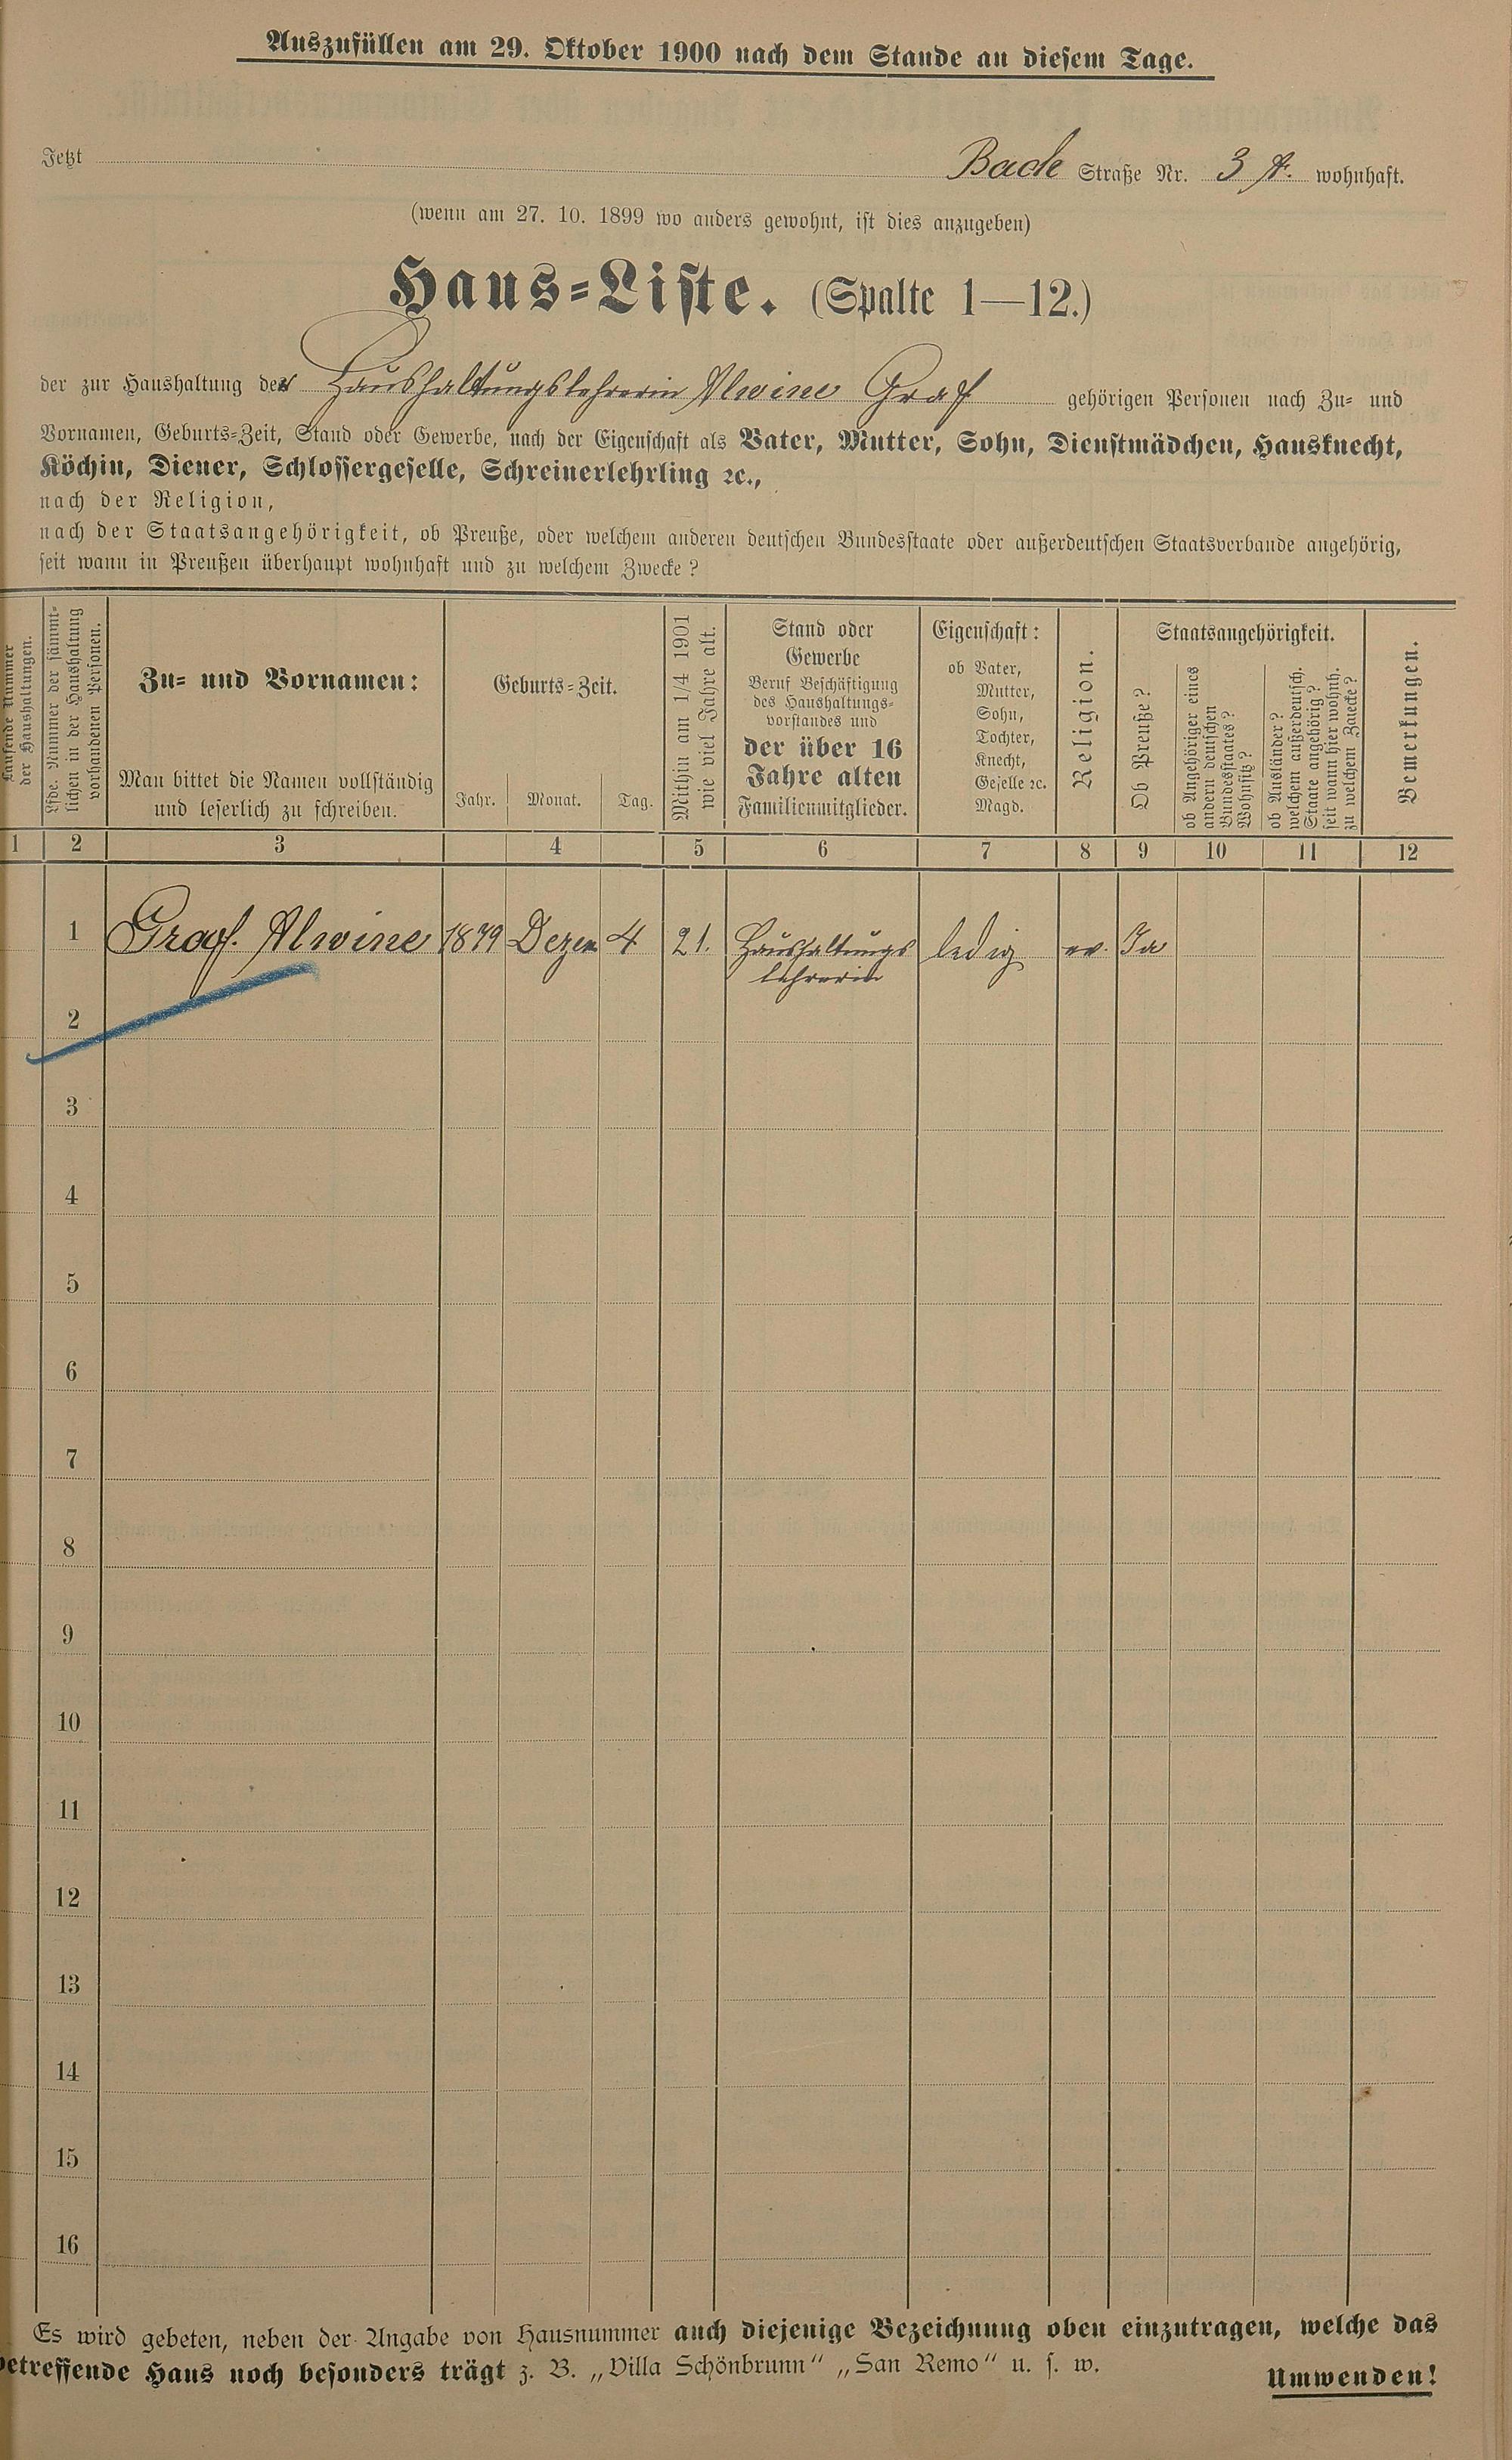 Auszufüllen am 29. Oktober 1900 nach dem Stande an diesem Tage.
Jetzt Bade Straße Nr. 3 A. wohnhaft.
(wenn am 27. 10. 1899 wo anders gewohnt, ist dies anzugeben)
Haus-Liste. (Spalte 1—12.)
der zur Haushaltung der Haushaltungslehrerin Alwine Graf gehörigen Personen nach Zu- und
Vornamen, Geburts-Zeit, Stand oder Gewerbe, nach der Eigenschaft als Vater, Mutter, Sohn, Dienstmädchen, Hausknecht,
Köchin, Diener, Schlossergeselle, Schreinerlehrling ꝛc.,
nach der Religion,
nach der Staatsangehörigkeit, ob Preuße, oder welchem anderen deutschen Bundesstaate oder außerdeutschen Staatsverbande angehörig,
seit wann in Preußen überhaupt wohnhaft und zu welchem Zwecke?
Laufende Nummer
der Haushaltungen.
Lfde. Nummer der sämmt-
lichen in der Haushaltung
vorhandenen Personen.
Zu- und Vornamen:
Man bittet die Namen vollständig
und leserlich zu schreiben.
Geburts-Zeit.
Jahr. Monat. Tag.
Mithin am 1/4 1901
wie viel Jahre alt.
Stand oder
Gewerbe
Beruf Beschäftigung
des Haushaltungs-
vorstandes und
der über 16
Jahre alten
Familienmitglieder.
Eigenschaft:
ob Vater,
Mutter,
Sohn,
Tochter,
Knecht,
Geselle ꝛc.
Magd.
Religion.
Staatsangehörigkeit.
Ob Preuße?
ob Angehöriger eines
andern deutschen
Bundesstaates?
Wohnsitz?
ob Ausländer?
welchem außerdeutsch.
Staate angehörig?
seit wann hier wohnh.
zu welchem Zwecke?
Bemerkungen.
1 2 3 4 5 6 7 8 9 10 11 12
1 Graf. Alwine 1879 Dezem 4 21. Haushaltungs ledig ev. Ja
lehrerin
2
3
4
5
6
7
8
9
10
11
12
13
14
15
16
Es wird gebeten, neben der Angabe von Hausnummer auch diejenige Bezeichnung oben einzutragen, welche das
betreffende Haus noch besonders trägt z. B. „Villa Schönbrunn“ „San Remo“ u. s. w.
Umwenden!